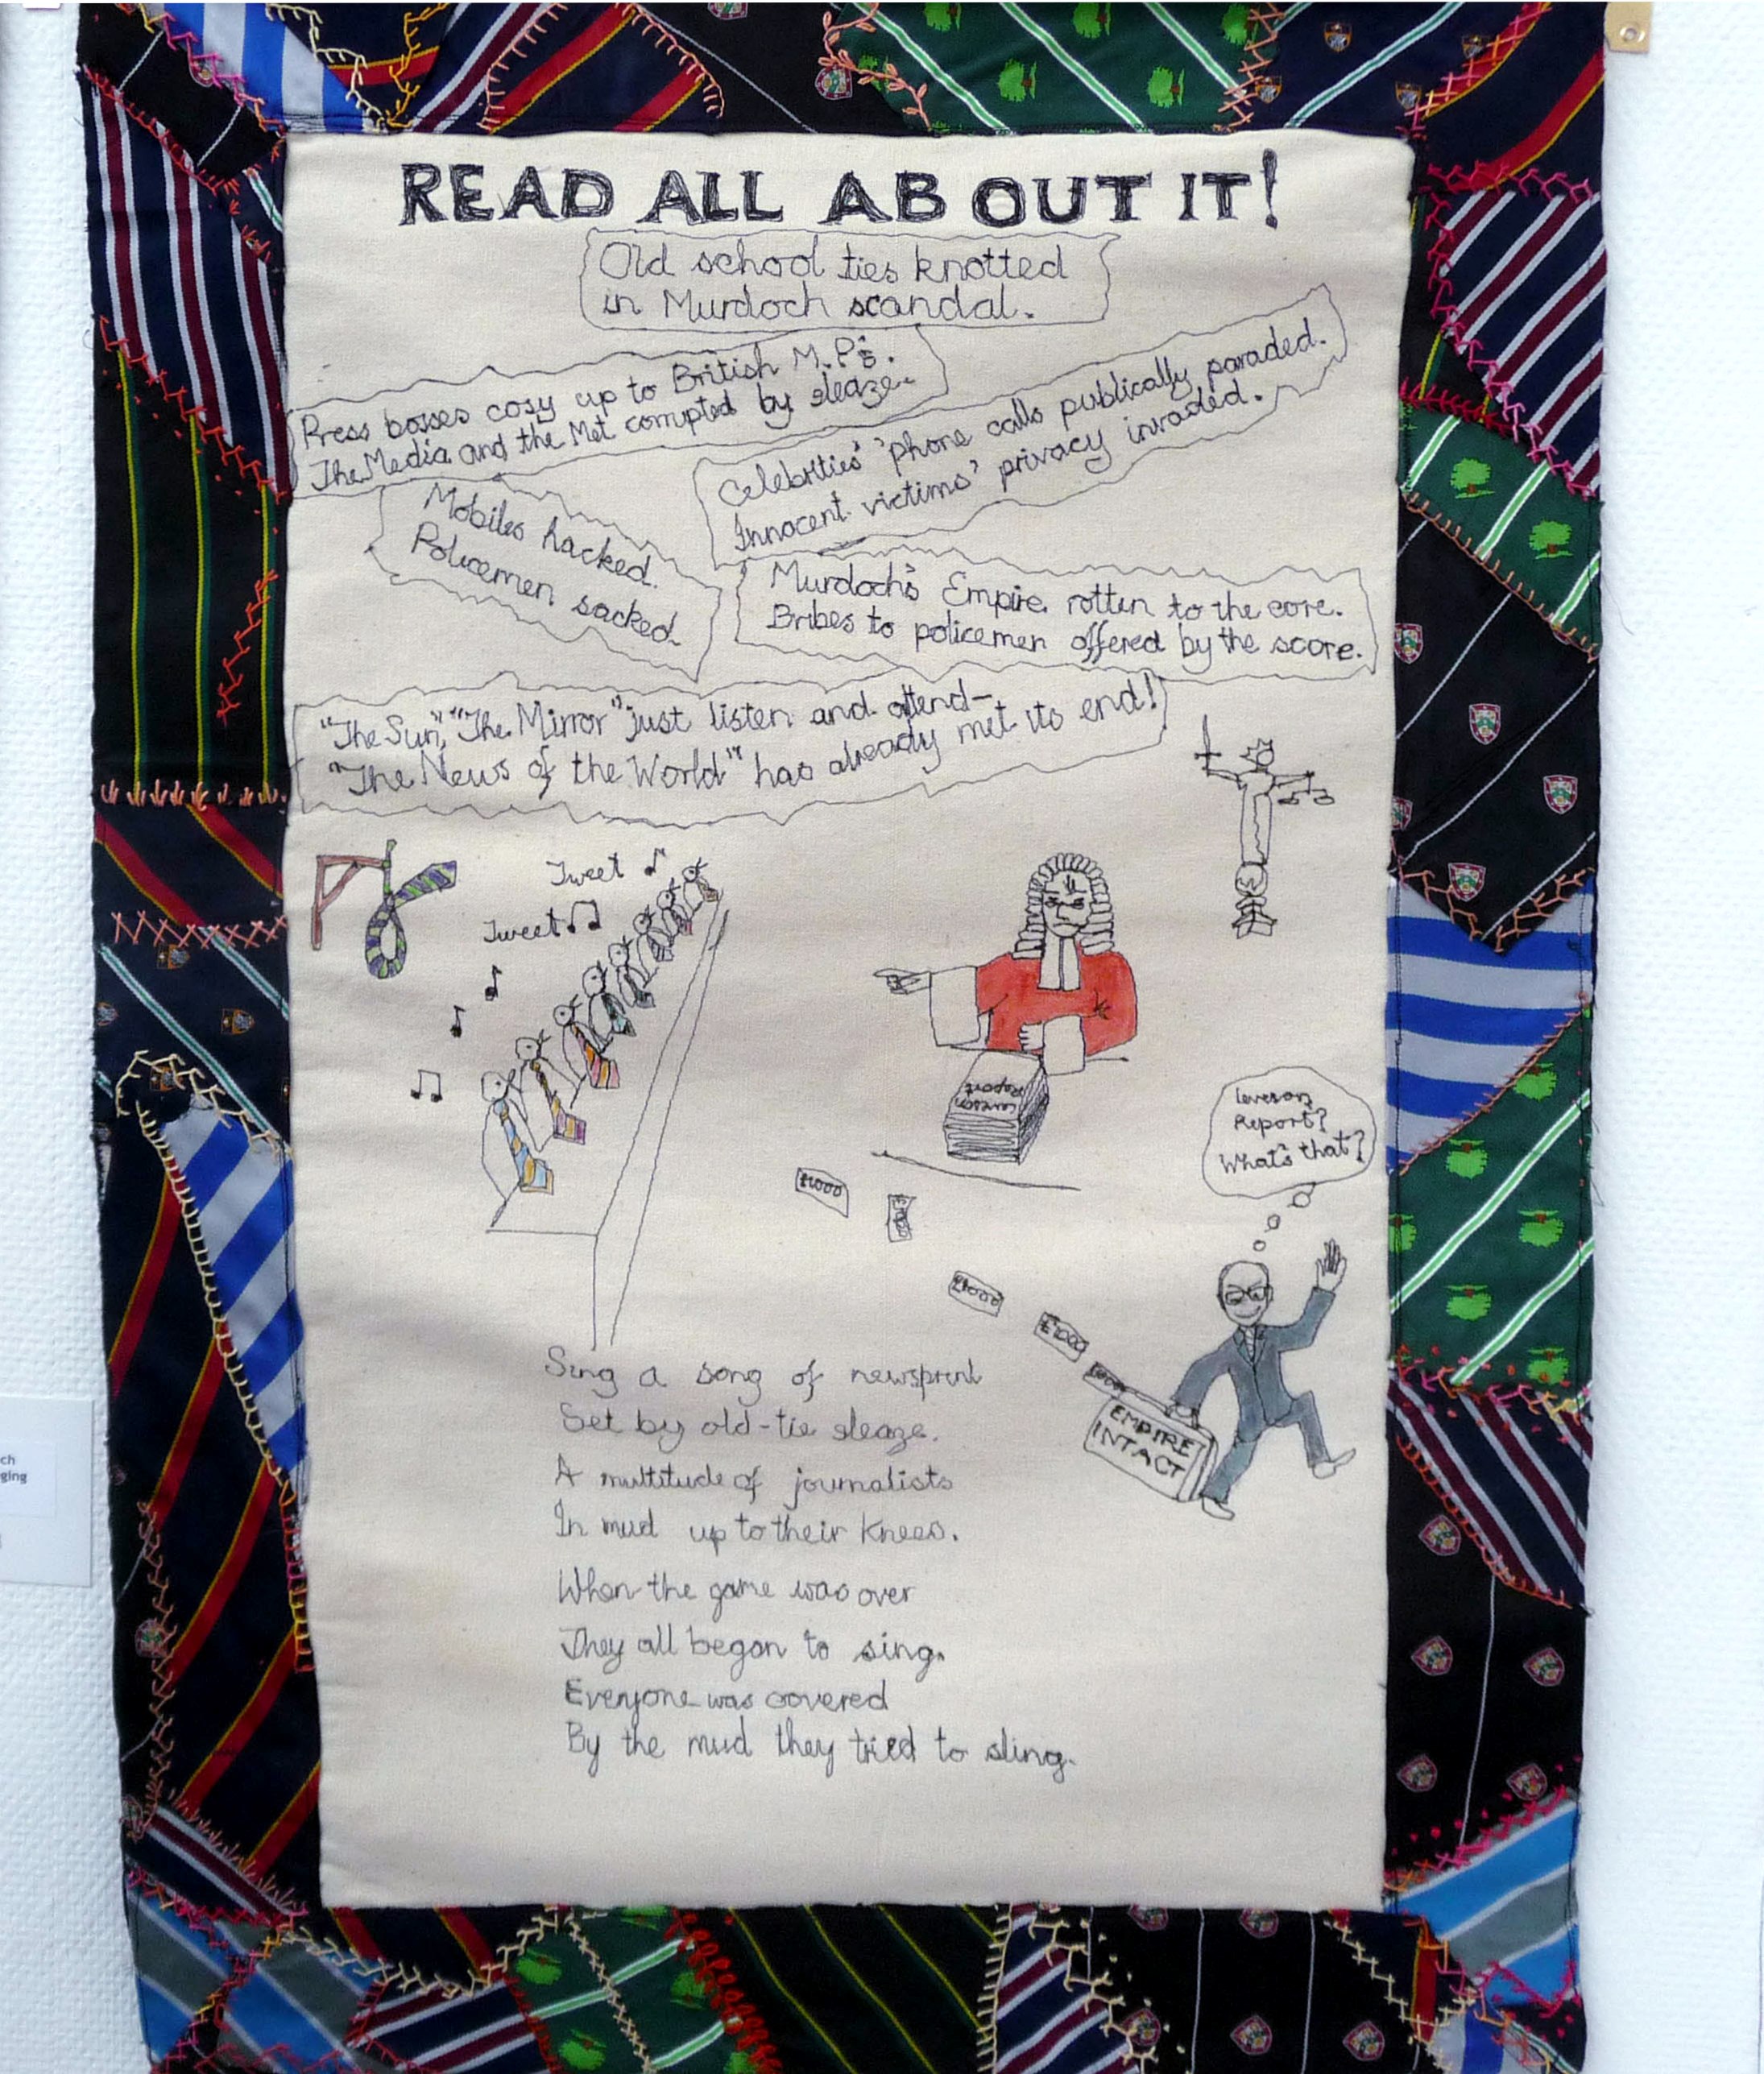 READ ALL ABOUT IT!
Old school ties knotted
in Murdoch scandal.
Press bosses cosy up to British M.P.'s.
The Media and the Met corrupted by sleaze.
Celebrities' 'phone calls publically paraded.
Innocent victims' privacy invaded.
Mobiles hacked.
Policemen sacked.
Murdoch's Empire rotten to the core.
Bribes to policemen offered by the score.
"The Sun," "The Mirror" just listen and attend-
"The News of the World" has already met its end!
Tweet
Tweet
Leveson
Report
Leveson
Report?
What's that?
£1000
£1000
£1000
£1000
EMPIRE
INTACT
Sing a song of newsprint
Set by old-tie sleaze.
A multitude of journalists
In mud up to their knees.
When the game was over
They all began to sing.
Everyone was covered
By the mud they tried to sling.
ch
ging